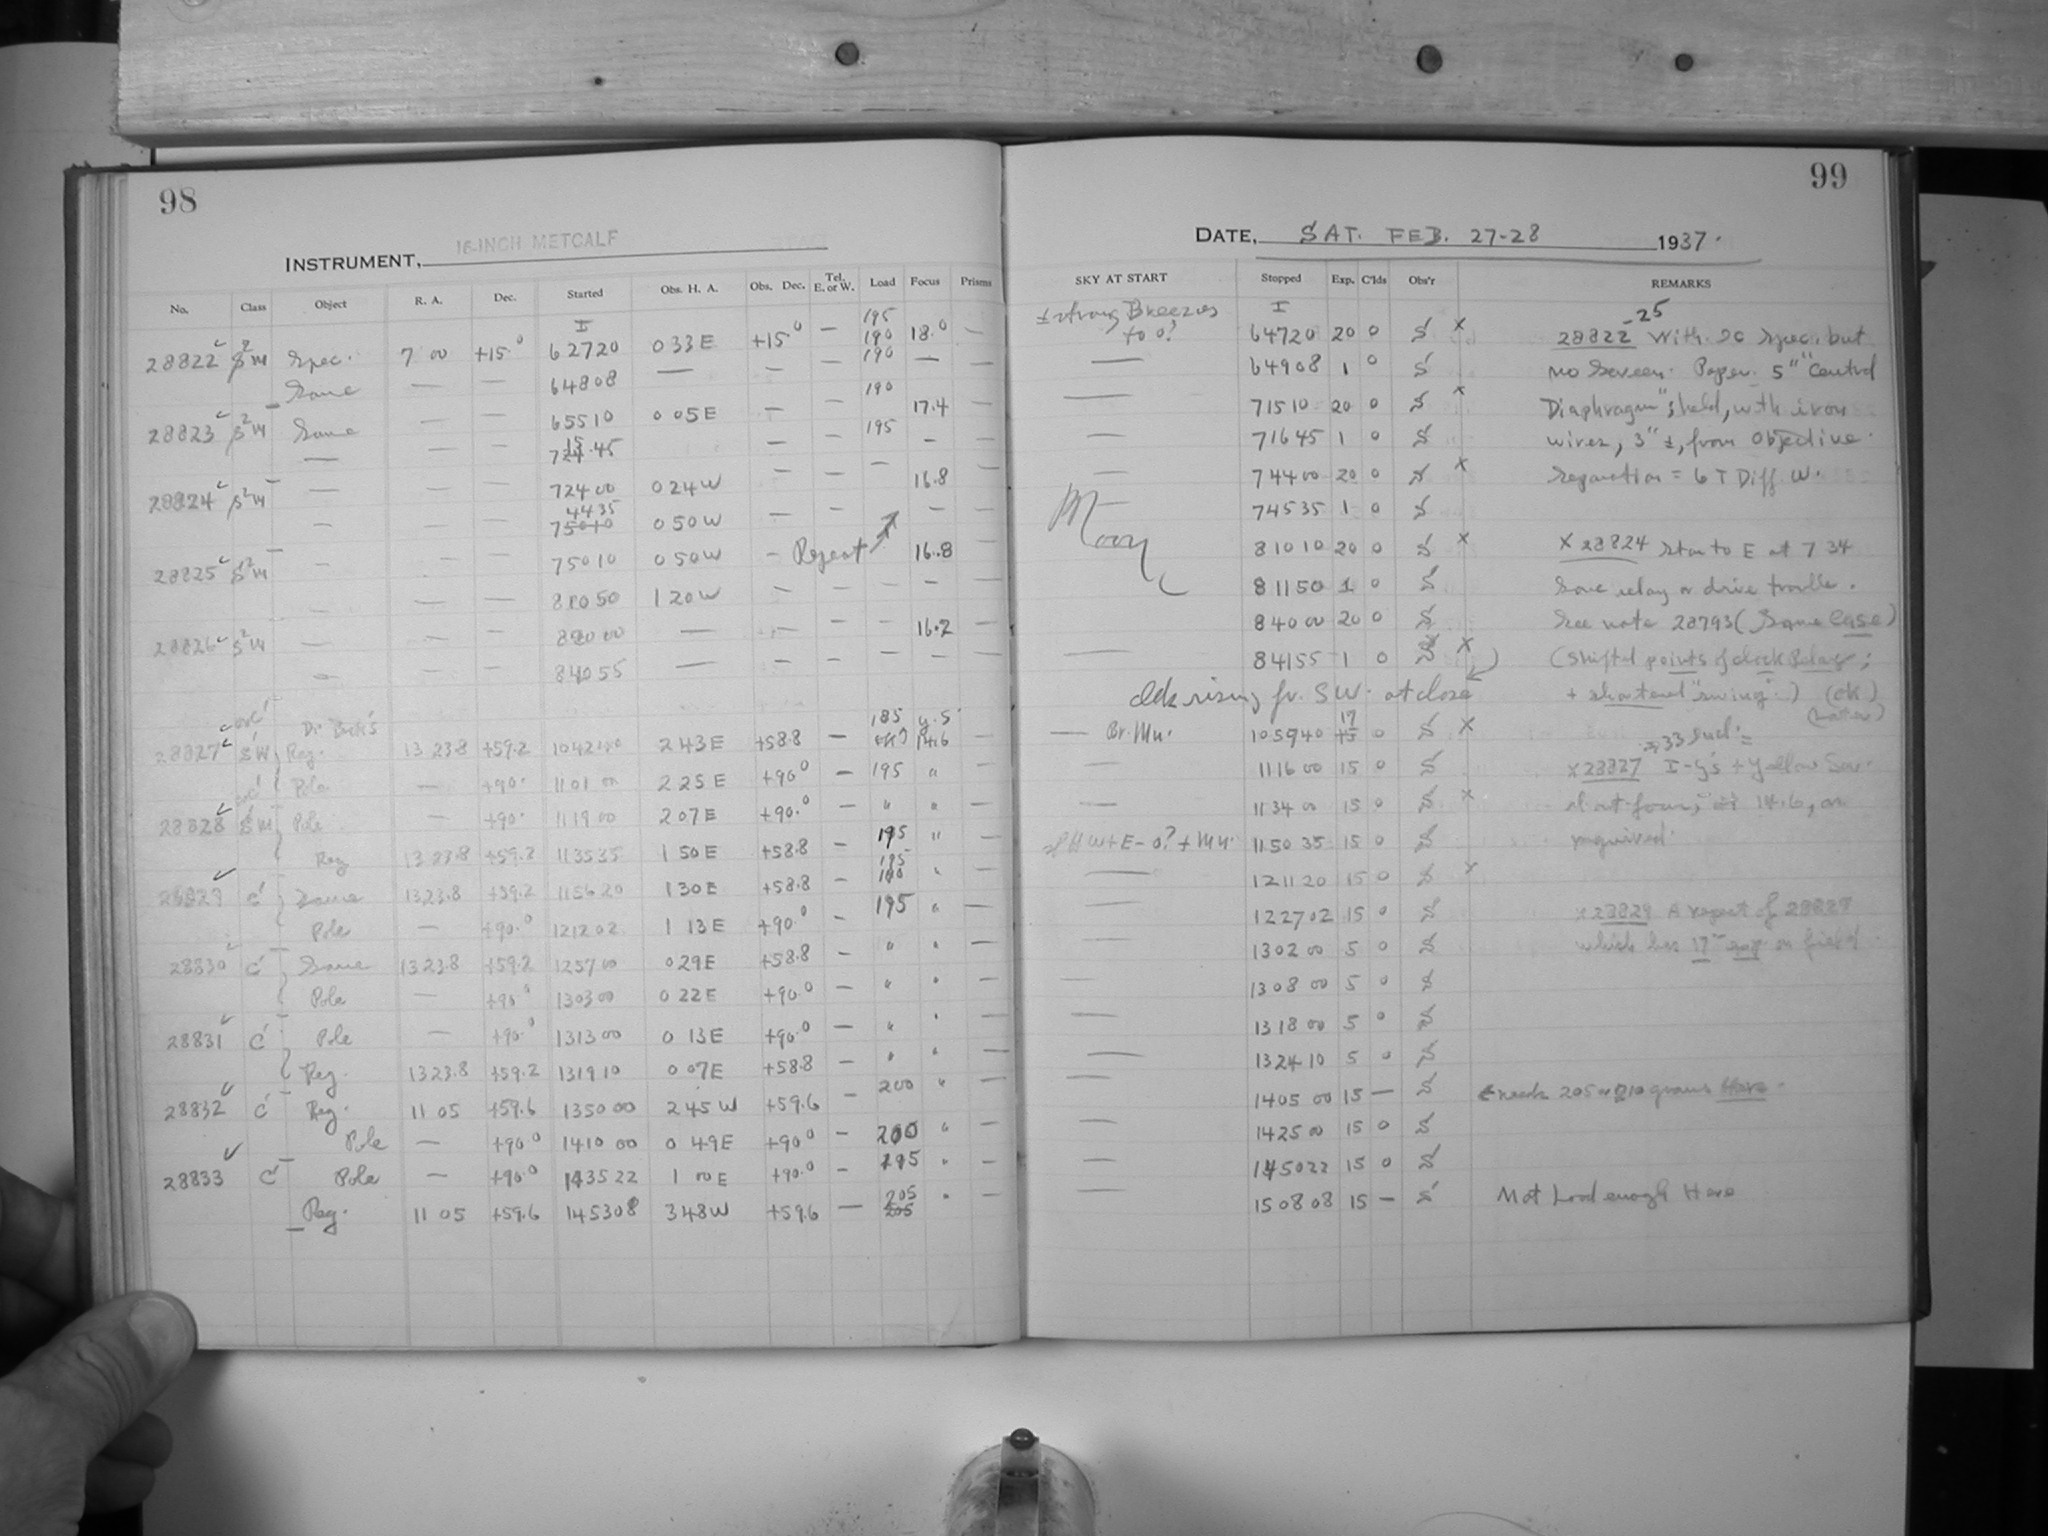 98
INSTRUMENT, 16-INCH METCALF
No. Class Object R. A. Dec. Started Obs. H. A. Obs. Dec. Tel. E. or W. Load Focus Prisms
I 195
28822 S²M Spec. 7 00 +15.0 62720 0 33 E +15.0 — 190 18.0 —
Same — — 64808 — — — 190 — —
28823 S²M Same — — 65510 0 05 E — — 190 17.4 —
— 45 — — 195 — —
28824 S²M — — — 72400 0 24 W — — — 16.8 —
— — — 4435 0 50 W — — — — —
28825 S²M — — — 75010 0 50 W — Repeat 16.8 —
— — — 50 1 20 W — — — — —
28826 S²M — — — 00 — — — — 16.2 —
— — — 84055 — — — — — —
28827 Reg. 13 23.8 +59.2 2 43 E +58.8 — 185 14.6
Pole — +90. 1101 00 2 25 E +90.0 — 195 "
28828 Pole — +90. 111900 2 07 E +90.0 — " " —
Reg 13 23.8 +59.2 113535 1 50 E +58.8 — 195 " —
28829 C' Same 13 23.8 +59.2 115620 1 30 E +58.8 — 185 " —
Pole — +90.0 121202 1 13 E +90.0 — 195 " —
28830 C' Same 13 23.8 +59.2 125700 0 29 E +58.8 — " " —
Pole — +90.0 130300 0 22 E +90.0 — " " —
28831 C' Pole — +90.0 131300 0 13 E +90.0 — " " —
Reg. 13 23.8 +59.2 131910 0 07 E +58.8 — " " —
28832 C' Reg. 11 05 +59.6 135000 2 45 W +59.6 — 200 " —
Pole — +90.0 141000 0 49 E +90.0 — 200 " —
28833 C' Pole — +90.0 143522 1 00 E +90.0 — 195 " —
Reg. 11 05 +59.6 145308 3 48 W +59.6 — 205 " —
99
DATE, SAT. FEB. 27-28 1937.
SKY AT START Stopped Exp. C'lds Obs'r REMARKS
± strong Breezes I -25
to 0? 64720 20 0 S x 28822 With 20 Spec. but
— 64908 1 0 S no Screen. Paper 5" Central
— 71510 20 0 S x Diaphragm" held, with iron
— 71645 1 0 S wires, 3" ±, from Objective.
— 74400 20 0 S x Separation = 6 T Diff. W.
Moon 74535 1 0 S
81010 20 0 S x x 28824 Stars to E at 7 34
81150 1 0 S Some relay or drive trouble.
84000 20 0 S See note 28793 (Same Case)
— 84155 1 0 S x (Shifted points of clock Relay;
clds rising fr. SW. at close + shortened "swing".) (OK)
— Br. Mn. 105940 17 0 S x
— 111600 15 0 S x 28827 + Yellow
— 113400 15 0 S x 14.6, as
W+E – 0? + Mn. 115035 15 0 S required.
— 121120 15 0 S x
— 122702 15 0 S x 28829 A repeat of
— 130200 5 0 S which has 17m exp on field.
— 130800 5 0 S
— 131800 5 0 S
— 132410 5 0 S
— 140500 15 — S needs 205 or 210 grams Here.
— 142500 15 0 S
— 145022 15 0 S
— 150808 15 — S Not Load enough Here